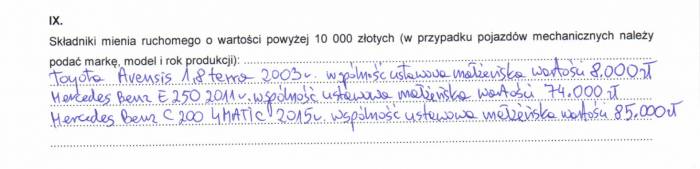 IX.
Składniki mienia ruchomego o wartości powyżej 10 000 złotych (w przypadku pojazdów mechanicznych należy
podać markę, model i rok produkcji):
Toyota Avensis 1,8 terra 2003r. wspólność ustawowa małżeńska wartości 8.000 zł
Mercedes Benz E 250 2011r. wspólność ustawowa małżeńska wartości 74.000 zł
Mercedes Benz C 200 4MATIC 2015r. wspólność ustawowa małżeńska wartości 85.000 zł